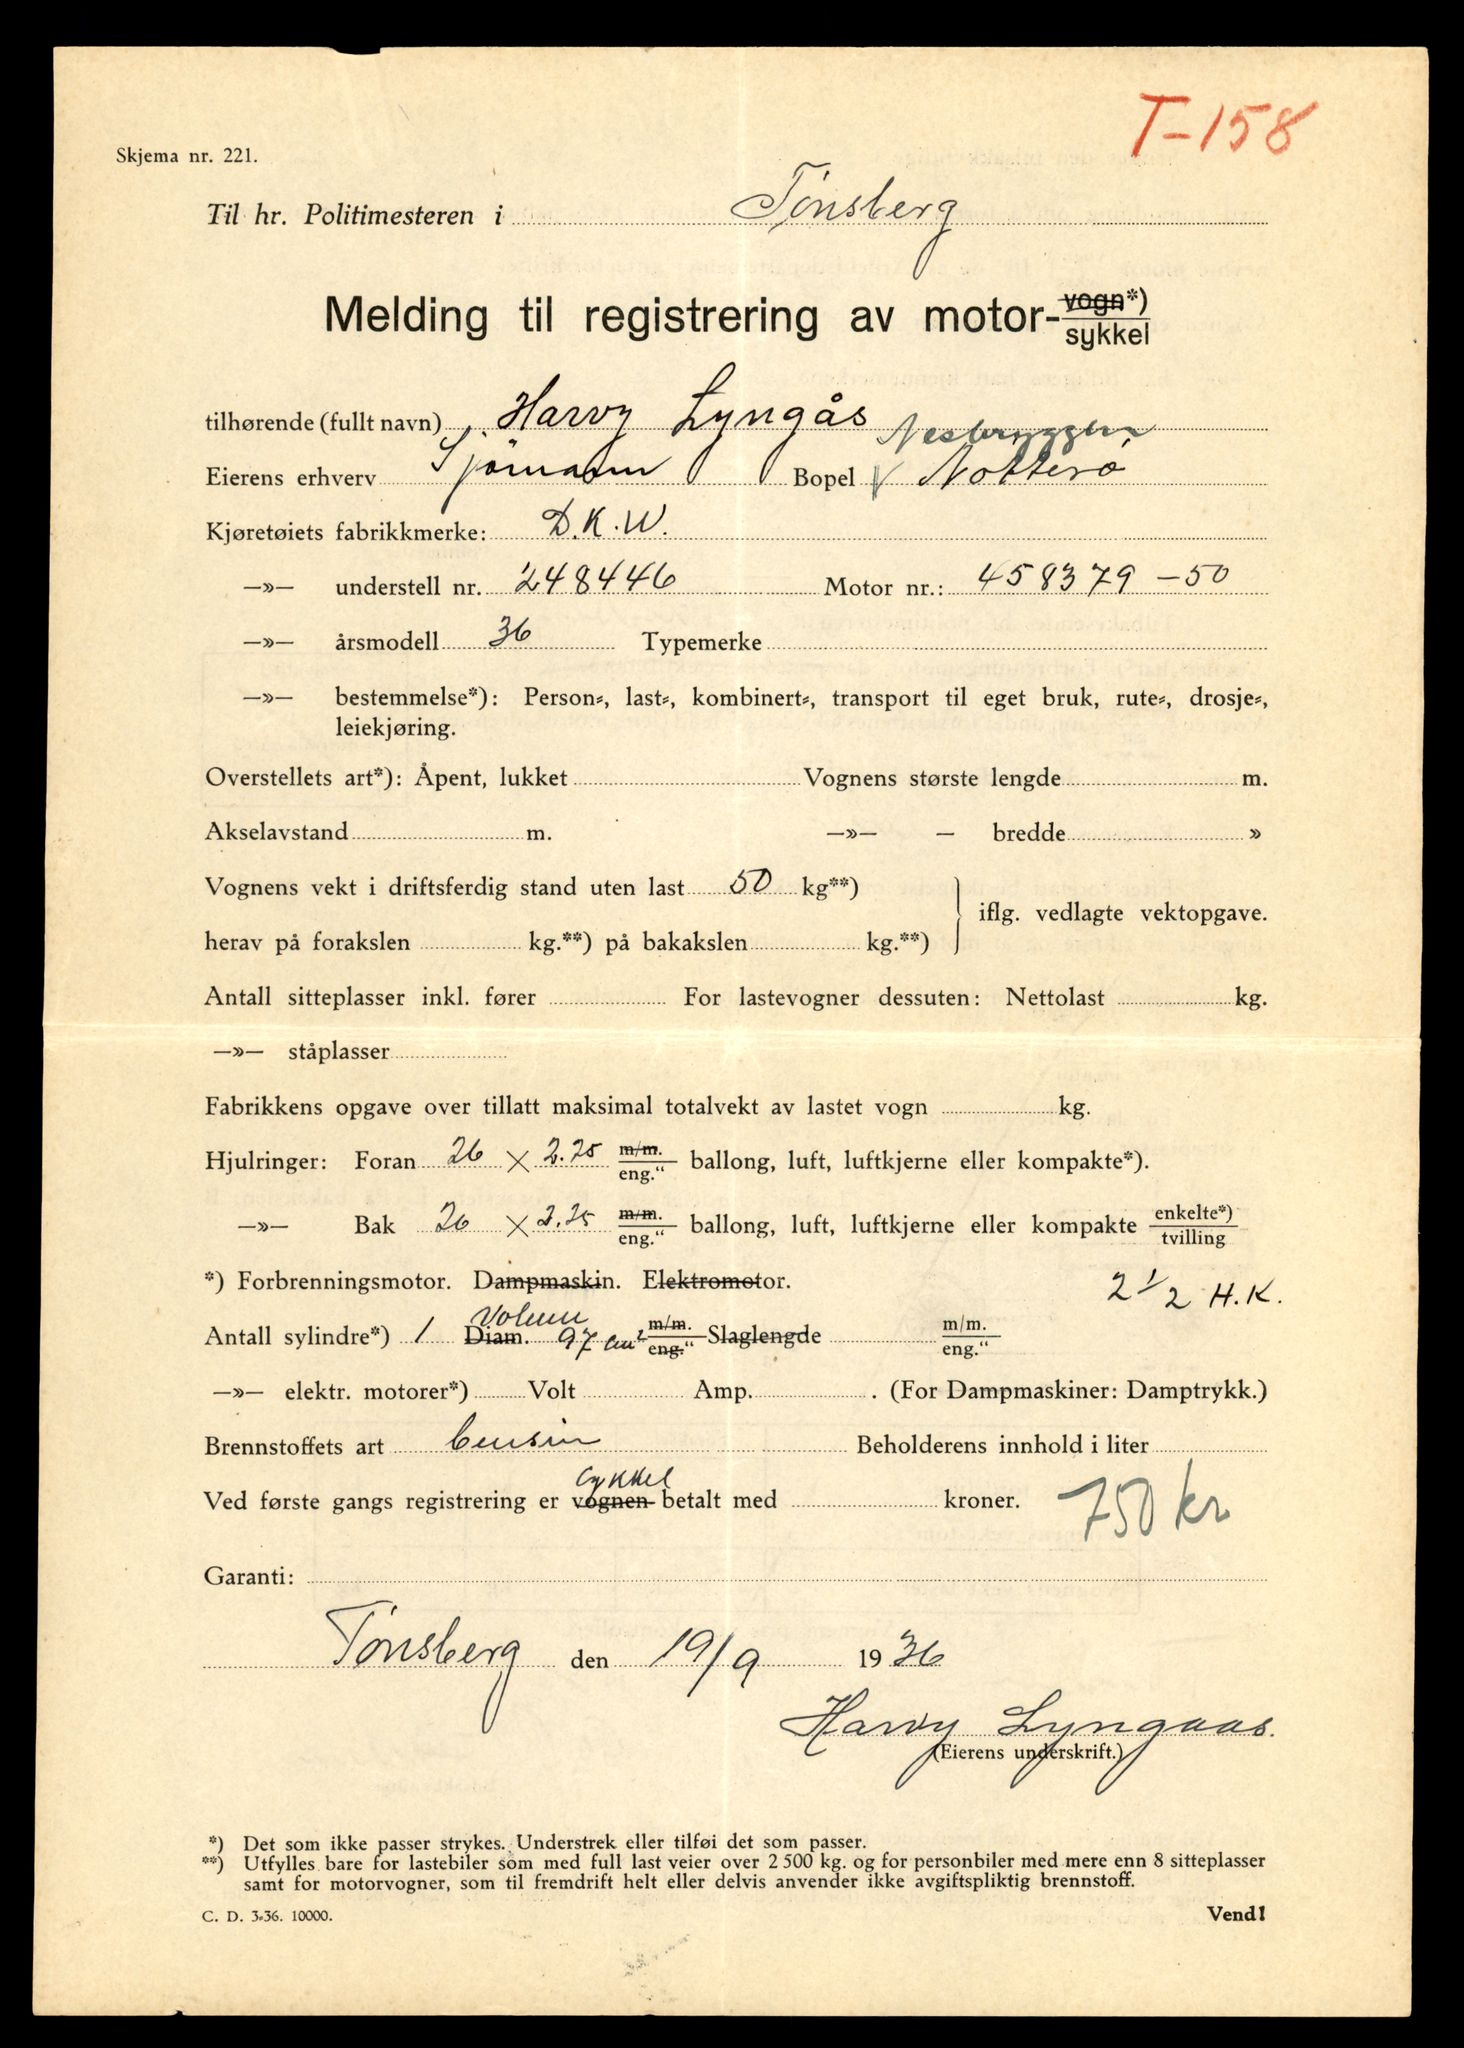 T-158
Skjema nr. 221.
Til hr. Politimesteren i Tönsberg
Melding til registrering av motor-vogn*)
sykkel
tilhørende (fullt navn) Harvy Lyngås
Nesbryggen
Eierens erhverv Sjömann Bopel Nötterö
Kjøretøiets fabrikkmerke: D.K.W.
—»— understell nr. 248446 Motor nr.: 458379 - 50
—»— årsmodell 36 Typemerke
—»— bestemmelse*): Person-, last-, kombinert-, transport til eget bruk, rute-, drosje-,
leiekjøring.
Overstellets art*): Åpent, lukket Vognens største lengde m.
Akselavstand m. —»— — bredde »
Vognens vekt i driftsferdig stand uten last 50 kg**)
iflg. vedlagte vektopgave.
herav på forakslen kg.**) på bakakslen kg.**)
Antall sitteplasser inkl. fører For lastevogner dessuten: Nettolast kg.
—»— ståplasser
Fabrikkens opgave over tillatt maksimal totalvekt av lastet vogn kg.
Hjulringer: Foran 26 × 2.25 m/m. eng." ballong, luft, luftkjerne eller kompakte*).
—»— Bak 26 × 2.25 m/m. eng." ballong, luft, luftkjerne eller kompakte enkelte*) tvilling
*) Forbrenningsmotor. Dampmaskin. Elektromotor.
2 1/2 H.K.
Volum
Antall sylindre*) 1 Diam. 97 cm² m/m. eng." Slaglengde m/m. eng."
—»— elektr. motorer*) Volt Amp. . (For Dampmaskiner: Damptrykk.)
Brennstoffets art bensin Beholderens innhold i liter
cykkel
Ved første gangs registrering er vognen betalt med kroner. 750 kr
Garanti:
Tönsberg den 19/9 1936
Harvy Lyngaas.
(Eierens underskrift.)
*) Det som ikke passer strykes. Understrek eller tilføi det som passer.
**) Utfylles bare for lastebiler som med full last veier over 2 500 kg. og for personbiler med mere enn 8 sitteplasser
samt for motorvogner, som til fremdrift helt eller delvis anvender ikke avgiftspliktig brennstoff.
C. D. 3-36. 10000.
Vend!